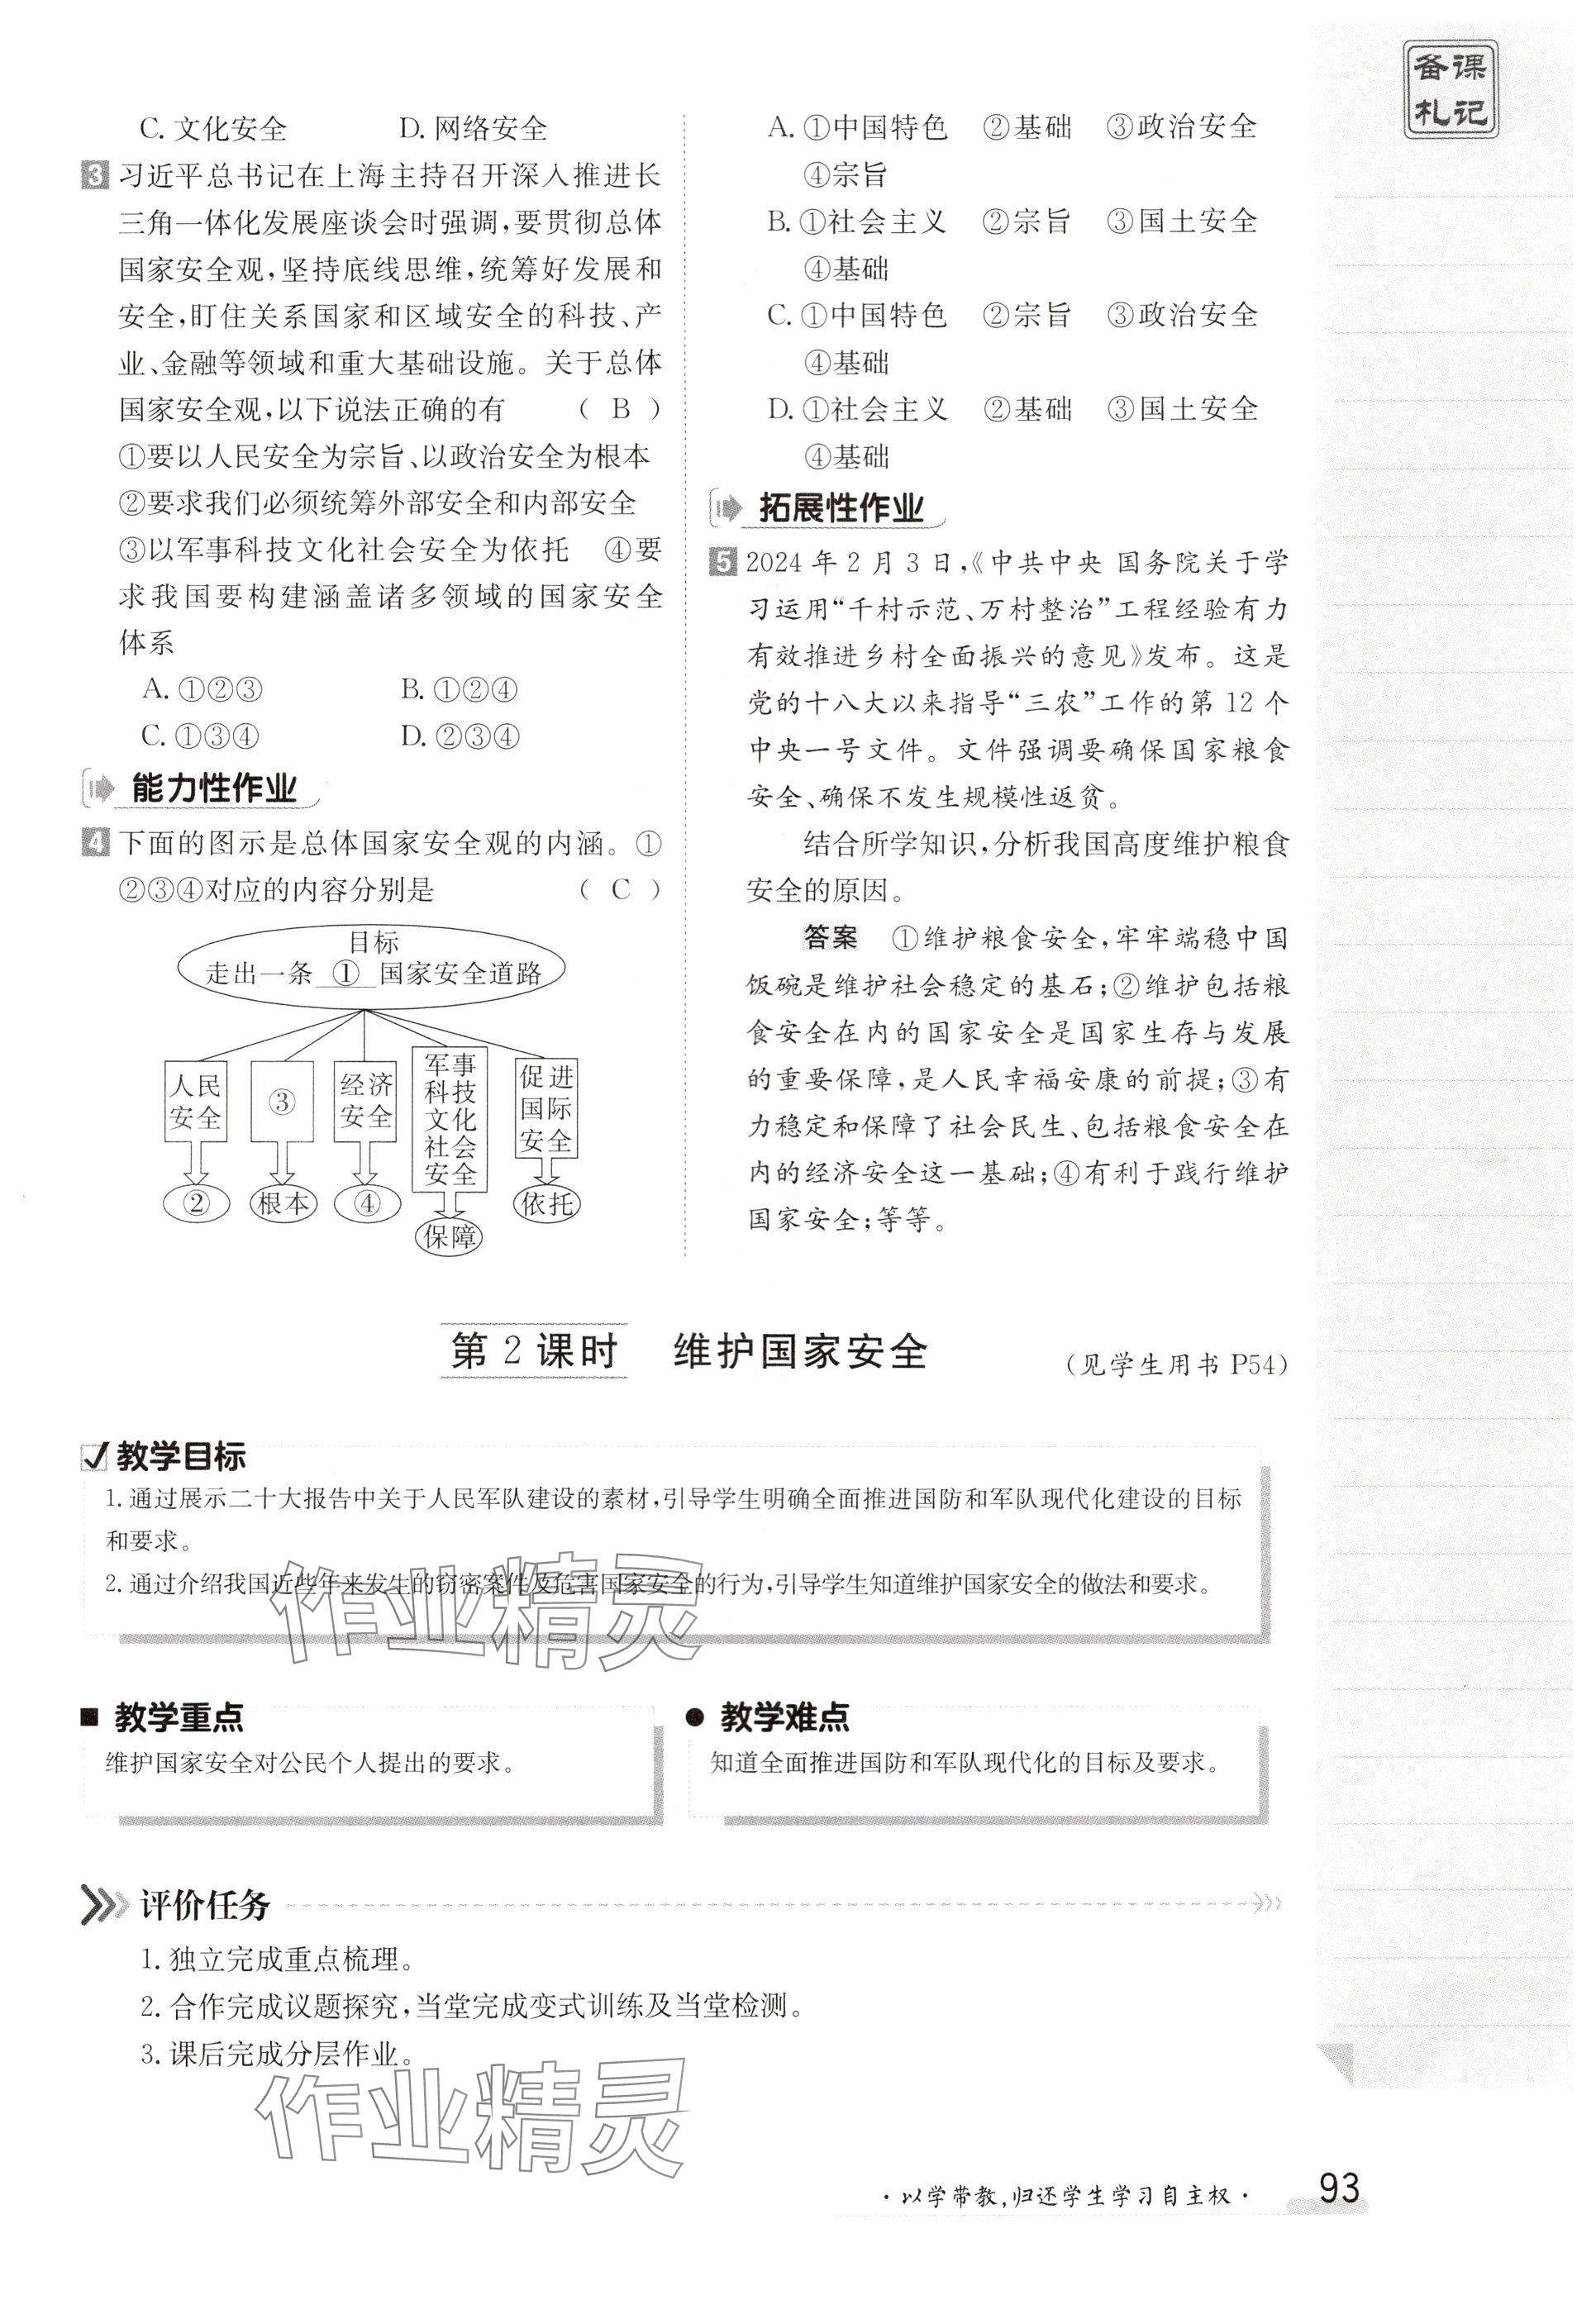 备课
札记
C. 文化安全 D. 网络安全
3 习近平总书记在上海主持召开深入推进长
三角一体化发展座谈会时强调,要贯彻总体
国家安全观,坚持底线思维,统筹好发展和
安全,盯住关系国家和区域安全的科技、产
业、金融等领域和重大基础设施。关于总体
国家安全观,以下说法正确的有 ( B )
①要以人民安全为宗旨、以政治安全为根本
②要求我们必须统筹外部安全和内部安全
③以军事科技文化社会安全为依托 ④要
求我国要构建涵盖诸多领域的国家安全
体系
A. ①②③ B. ①②④
C. ①③④ D. ②③④
能力性作业
4 下面的图示是总体国家安全观的内涵。①
②③④对应的内容分别是 ( C )
目标
走出一条 ① 国家安全道路
人民
安全
③
经济
安全
军事
科技
文化
社会
安全
促进
国际
安全
②
根本
④
保障
依托
A. ①中国特色 ②基础 ③政治安全
④宗旨
B. ①社会主义 ②宗旨 ③国土安全
④基础
C. ①中国特色 ②宗旨 ③政治安全
④基础
D. ①社会主义 ②基础 ③国土安全
④基础
拓展性作业
5 2024 年 2 月 3 日,《中共中央 国务院关于学
习运用“千村示范、万村整治”工程经验有力
有效推进乡村全面振兴的意见》发布。这是
党的十八大以来指导“三农”工作的第 12 个
中央一号文件。文件强调要确保国家粮食
安全、确保不发生规模性返贫。
结合所学知识,分析我国高度维护粮食
安全的原因。
答案 ①维护粮食安全,牢牢端稳中国
饭碗是维护社会稳定的基石;②维护包括粮
食安全在内的国家安全是国家生存与发展
的重要保障,是人民幸福安康的前提;③有
力稳定和保障了社会民生、包括粮食安全在
内的经济安全这一基础;④有利于践行维护
国家安全;等等。
第 2 课时 维护国家安全 (见学生用书 P54)
教学目标
1. 通过展示二十大报告中关于人民军队建设的素材,引导学生明确全面推进国防和军队现代化建设的目标
和要求。
2. 通过介绍我国近些年来发生的窃密案件及危害国家安全的行为,引导学生知道维护国家安全的做法和要求。
作业精灵
教学重点
维护国家安全对公民个人提出的要求。
教学难点
知道全面推进国防和军队现代化的目标及要求。
评价任务
1. 独立完成重点梳理。
2. 合作完成议题探究,当堂完成变式训练及当堂检测。
3. 课后完成分层作业。
作业精灵
·以学带教,归还学生学习自主权· 93